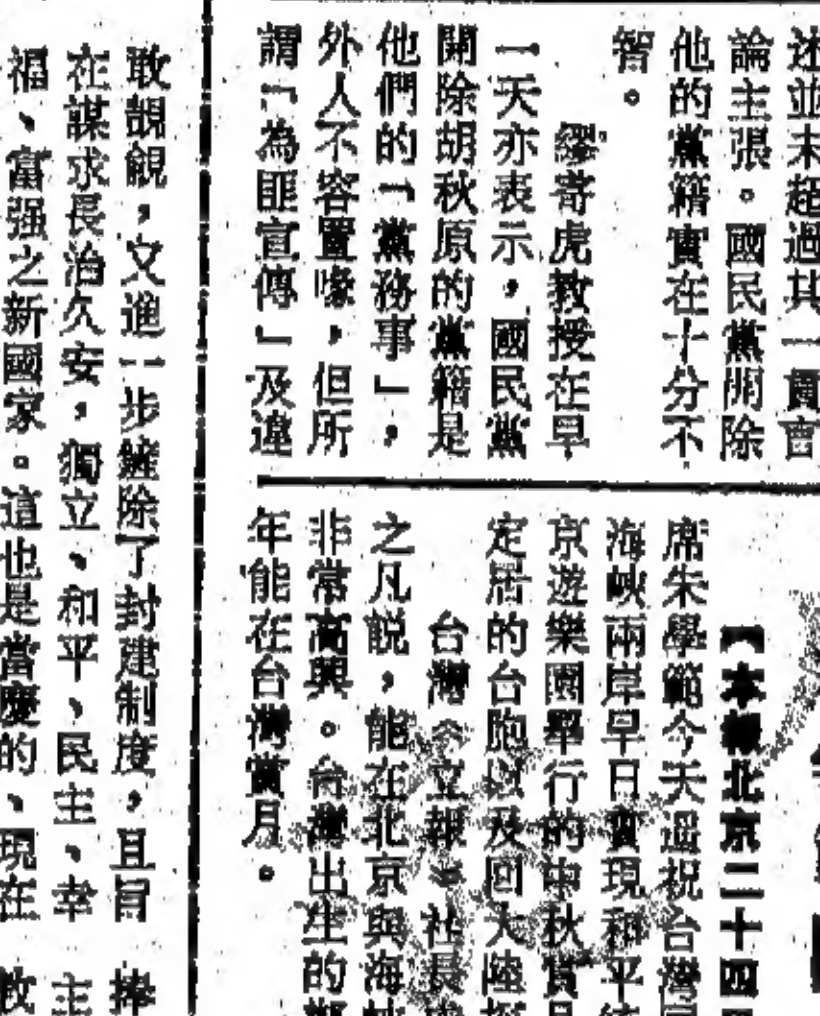 述並未超過其一貫言
論主張。國民黨開除
他的黨籍實在十分不
智。
繆寄虎教授在早
一天亦表示,國民黨
開除胡秋原的黨籍是
他們的「黨務事」,
外人不容置喙,但所
謂「為匪宣傳」及違
【本報北京二十四日
席朱學範今天遥祝台灣同
海峽兩岸早日實現和平統
京遊樂園舉行的中秋賞月
定居的台胞以及回大陸探
台灣《立報》社長
之凡説,能在北京與海峽
非常高興。台灣出生的
年能在台灣賞月。
敢覬覦,又進一步鏟除了封建制度,且旨
在謀求長治久安,獨立、和平、民主、幸
福、富强之新國家。這也是當慶的、現在
捧
主
教